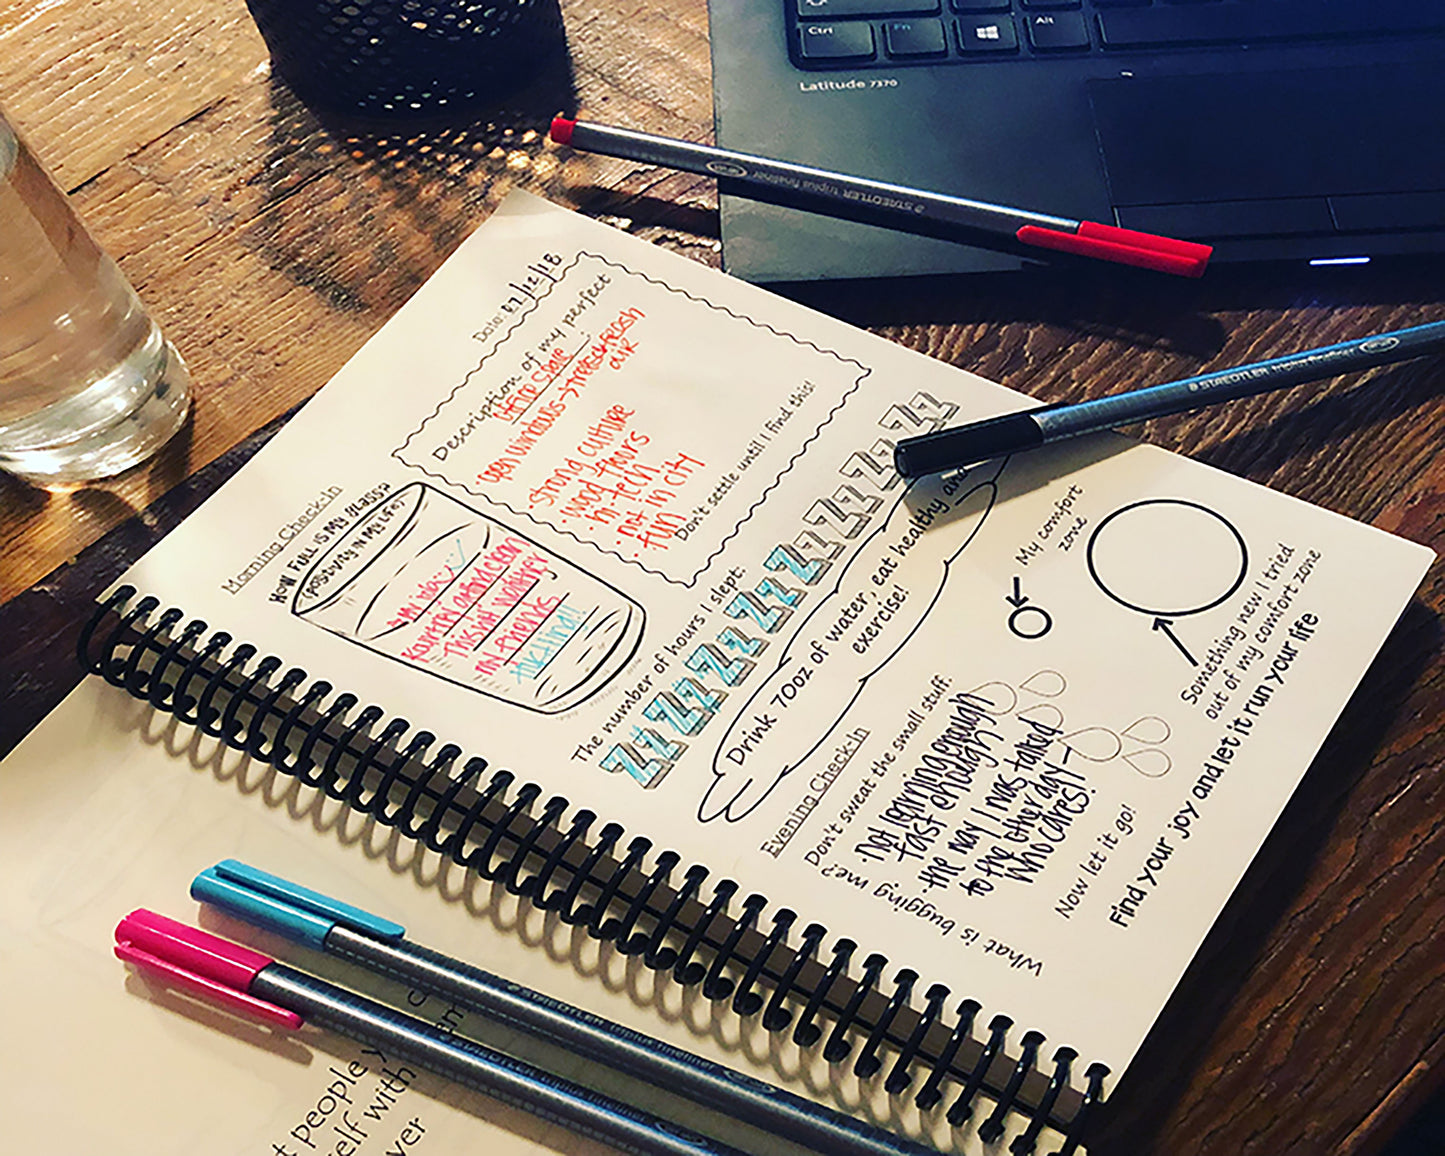 Ctrl
Fn
Alt
Latitude 7370
STAEDTLER triplus fineliner
STAEDTLER triplus fineliner
Date: 07/12/18
Morning Check-In
Description of my perfect
office space :
open windows → fresh
air
strong culture
· wood floors
· hi-tech
· not in city
· fun
Don't settle until I find this!
HOW FULL IS MY GLASS?
(POSITIVITY IN MY LIFE)
This is
my friends
The number of hours I slept:
ZZ ZZ ZZ ZZ ZZ ZZ ZZ ZZ
Drink 70oz of water, eat healthy and
exercise!
Evening Check-In
Don't sweat the small stuff.
What is bugging me?
· Not learning enough
fast enough
· the way I was talked
to the other day –
who cares!
Now let it go!
My comfort
zone
Something new I tried
out of my comfort zone
Find your joy and let it run your life
STAEDTLER triplus fineliner
STAEDTLER triplus fineliner
people y
self with